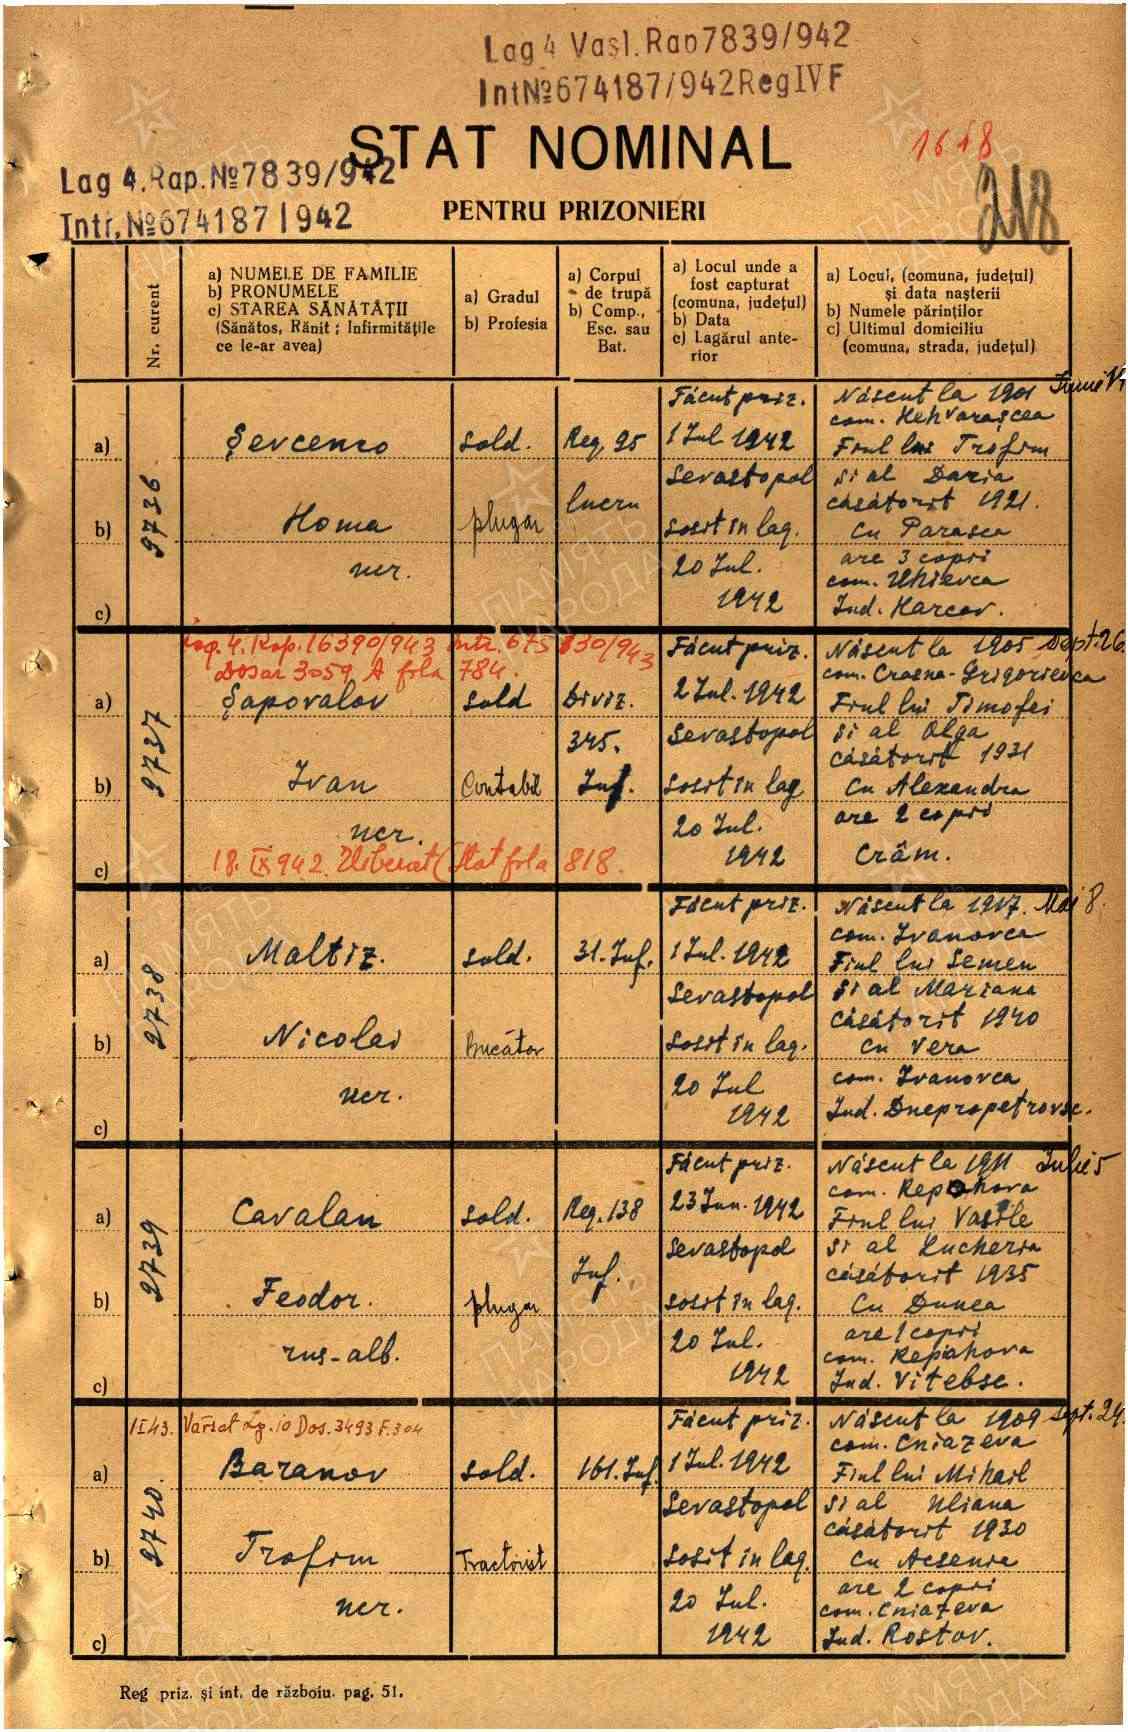 Lag 4 Vasl. Rap 7839/942
Int № 674187/942 Reg IV F
STAT NOMINAL
1618
218
Lag 4. Rap. № 7839/942
Intr. № 674187/942
PENTRU PRIZONIERI
Nr. curent
a) NUMELE DE FAMILIE
b) PRONUMELE
c) STAREA SĂNĂTĂȚII
(Sănătos, Rănit ; Infirmitățile
ce le-ar avea)
a) Gradul
b) Profesia
a) Corpul
de trupă
b) Comp.,
Esc. sau
Bat.
a) Locul unde a
fost capturat
(comuna, județul)
b) Data
c) Lagărul ante-
rior
a) Locul, (comuna, județul)
și data nașterii
b) Numele părinților
c) Ultimul domiciliu
(comuna, strada, județul)
a)
b)
c)
2736
Șevcenco
Homa
ucr.
sold.
plugar
Reg. 95
lucru
Făcut priz.
1 Iul 1942
Sevastopol
sosit în lag.
20 Iul.
1942
Născut la 1901
com.
Fiul lui Trofim
si al Daria
căsătorit 1921.
cu Parasca
are 3 copii
com.
Jud. Harcov.
Lag. 4. Rap. 16390/943 intr. 675830/943
Dosar 3059 A fila 784.
a)
b)
c)
2737
Șapovalov
Ivan
ucr.
18. IX 942. Eliberat (Stat fila 818.
sold
Contabil
Diviz.
345.
Inf.
Făcut priz.
2 Iul. 1942
Sevastopol
sosit în lag
20 Iul.
1942
Născut la 1905 Sept. 26.
com. Crasna-Grigorievca
Fiul lui Timofei
si al Olga
căsătorit 1931
cu Alexandra
are 2 copii
Crâm.
a)
b)
c)
2738
Maltiz.
Nicolai
ucr.
sold.
Bucătar
31. Inf.
Făcut priz.
1 Iul. 1942
Sevastopol
sosit în lag.
20 Iul
1942
Născut la 1917. Mai 8.
com. Ivanovca
Fiul lui Semen
si al Mariana
căsătorit 1940
cu Vera
com. Ivanovca
Jud. Dnepropetrovsc.
a)
b)
c)
2739
Cavalan
Feodor.
rus-alb.
sold.
plugar
Reg. 138
Inf.
Făcut priz.
23 Iun. 1942
Sevastopol
sosit în lag.
20 Iul.
1942
Născut la 1911 Iulie 5
com. Repahova
Fiul lui Vasile
si al Lucheria
căsătorit 1935
cu Dunea
are 1 copii
com. Repahova
Jud. Vitebsc.
1 I 43. Vărsat Lg. 10 Dos. 3493 F. 304
a)
b)
c)
2740.
Baranov
Trofim
ucr.
sold.
Tractorist
161. Inf.
Făcut priz.
1 Iul. 1942
Sevastopol
sosit în lag.
20 Iul.
1942
Născut la 1909 Sept. 24.
com. Cniazeva
Fiul lui Mihail
si al Uliana
căsătorit 1930
cu Acsenia
are 2 copii
com. Cniazeva
Jud. Rostov.
Reg priz. și int. de războiu. pag. 51.
ПАМЯТЬ
НАРОДА